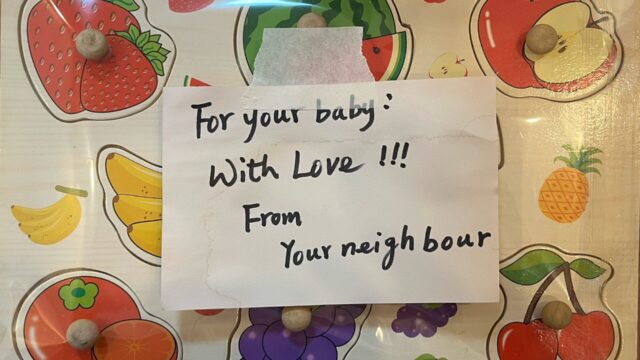 For your baby:
With Love !!!
From
Your neighbour